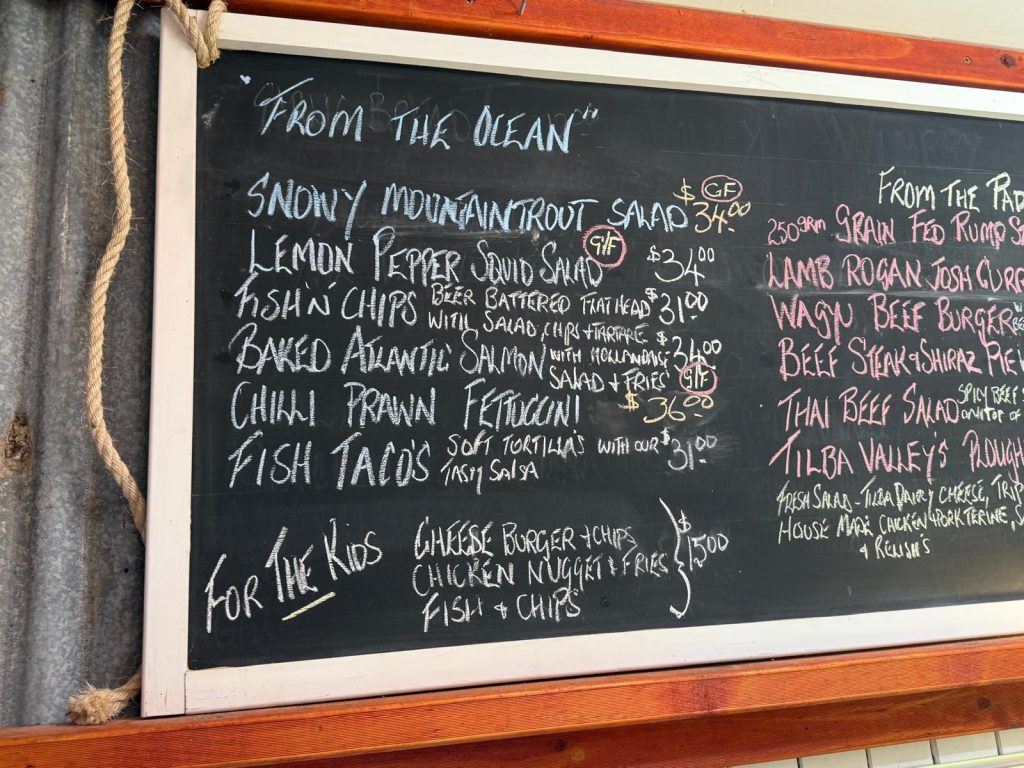 "FROM THE OCEAN"
SNOWY MOUNTAIN TROUT SALAD GF $34.00
LEMON PEPPER SQUID SALAD G/F $34.00
FISH 'N' CHIPS BEER BATTERED FLATHEAD $31.00
WITH SALAD, CHIPS + TARTARE
BAKED ATLANTIC SALMON WITH $34.00
SALAD + FRIES G/F
CHILLI PRAWN FETTUCCINI $36.00
FISH TACO'S SOFT TORTILLA'S WITH OUR $31.00
TASTY SALSA
FOR THE KIDS
CHEESE BURGER + CHIPS
CHICKEN NUGGET & FRIES $15.00
FISH & CHIPS
FROM THE PAD
250grm GRAIN FED RUMP S
LAMB ROGAN JOSH CURR
WAGYU BEEF BURGER
BEEF STEAK & SHIRAZ PIE
THAI BEEF SALAD SPICY BEEF
ON TOP OF
TILBA VALLEY'S PLOUGH
FRESH SALAD - TILBA DAIRY CHEESE, TRIP
HOUSE MADE CHICKEN & PORK TERINE, S
& RELISH'S